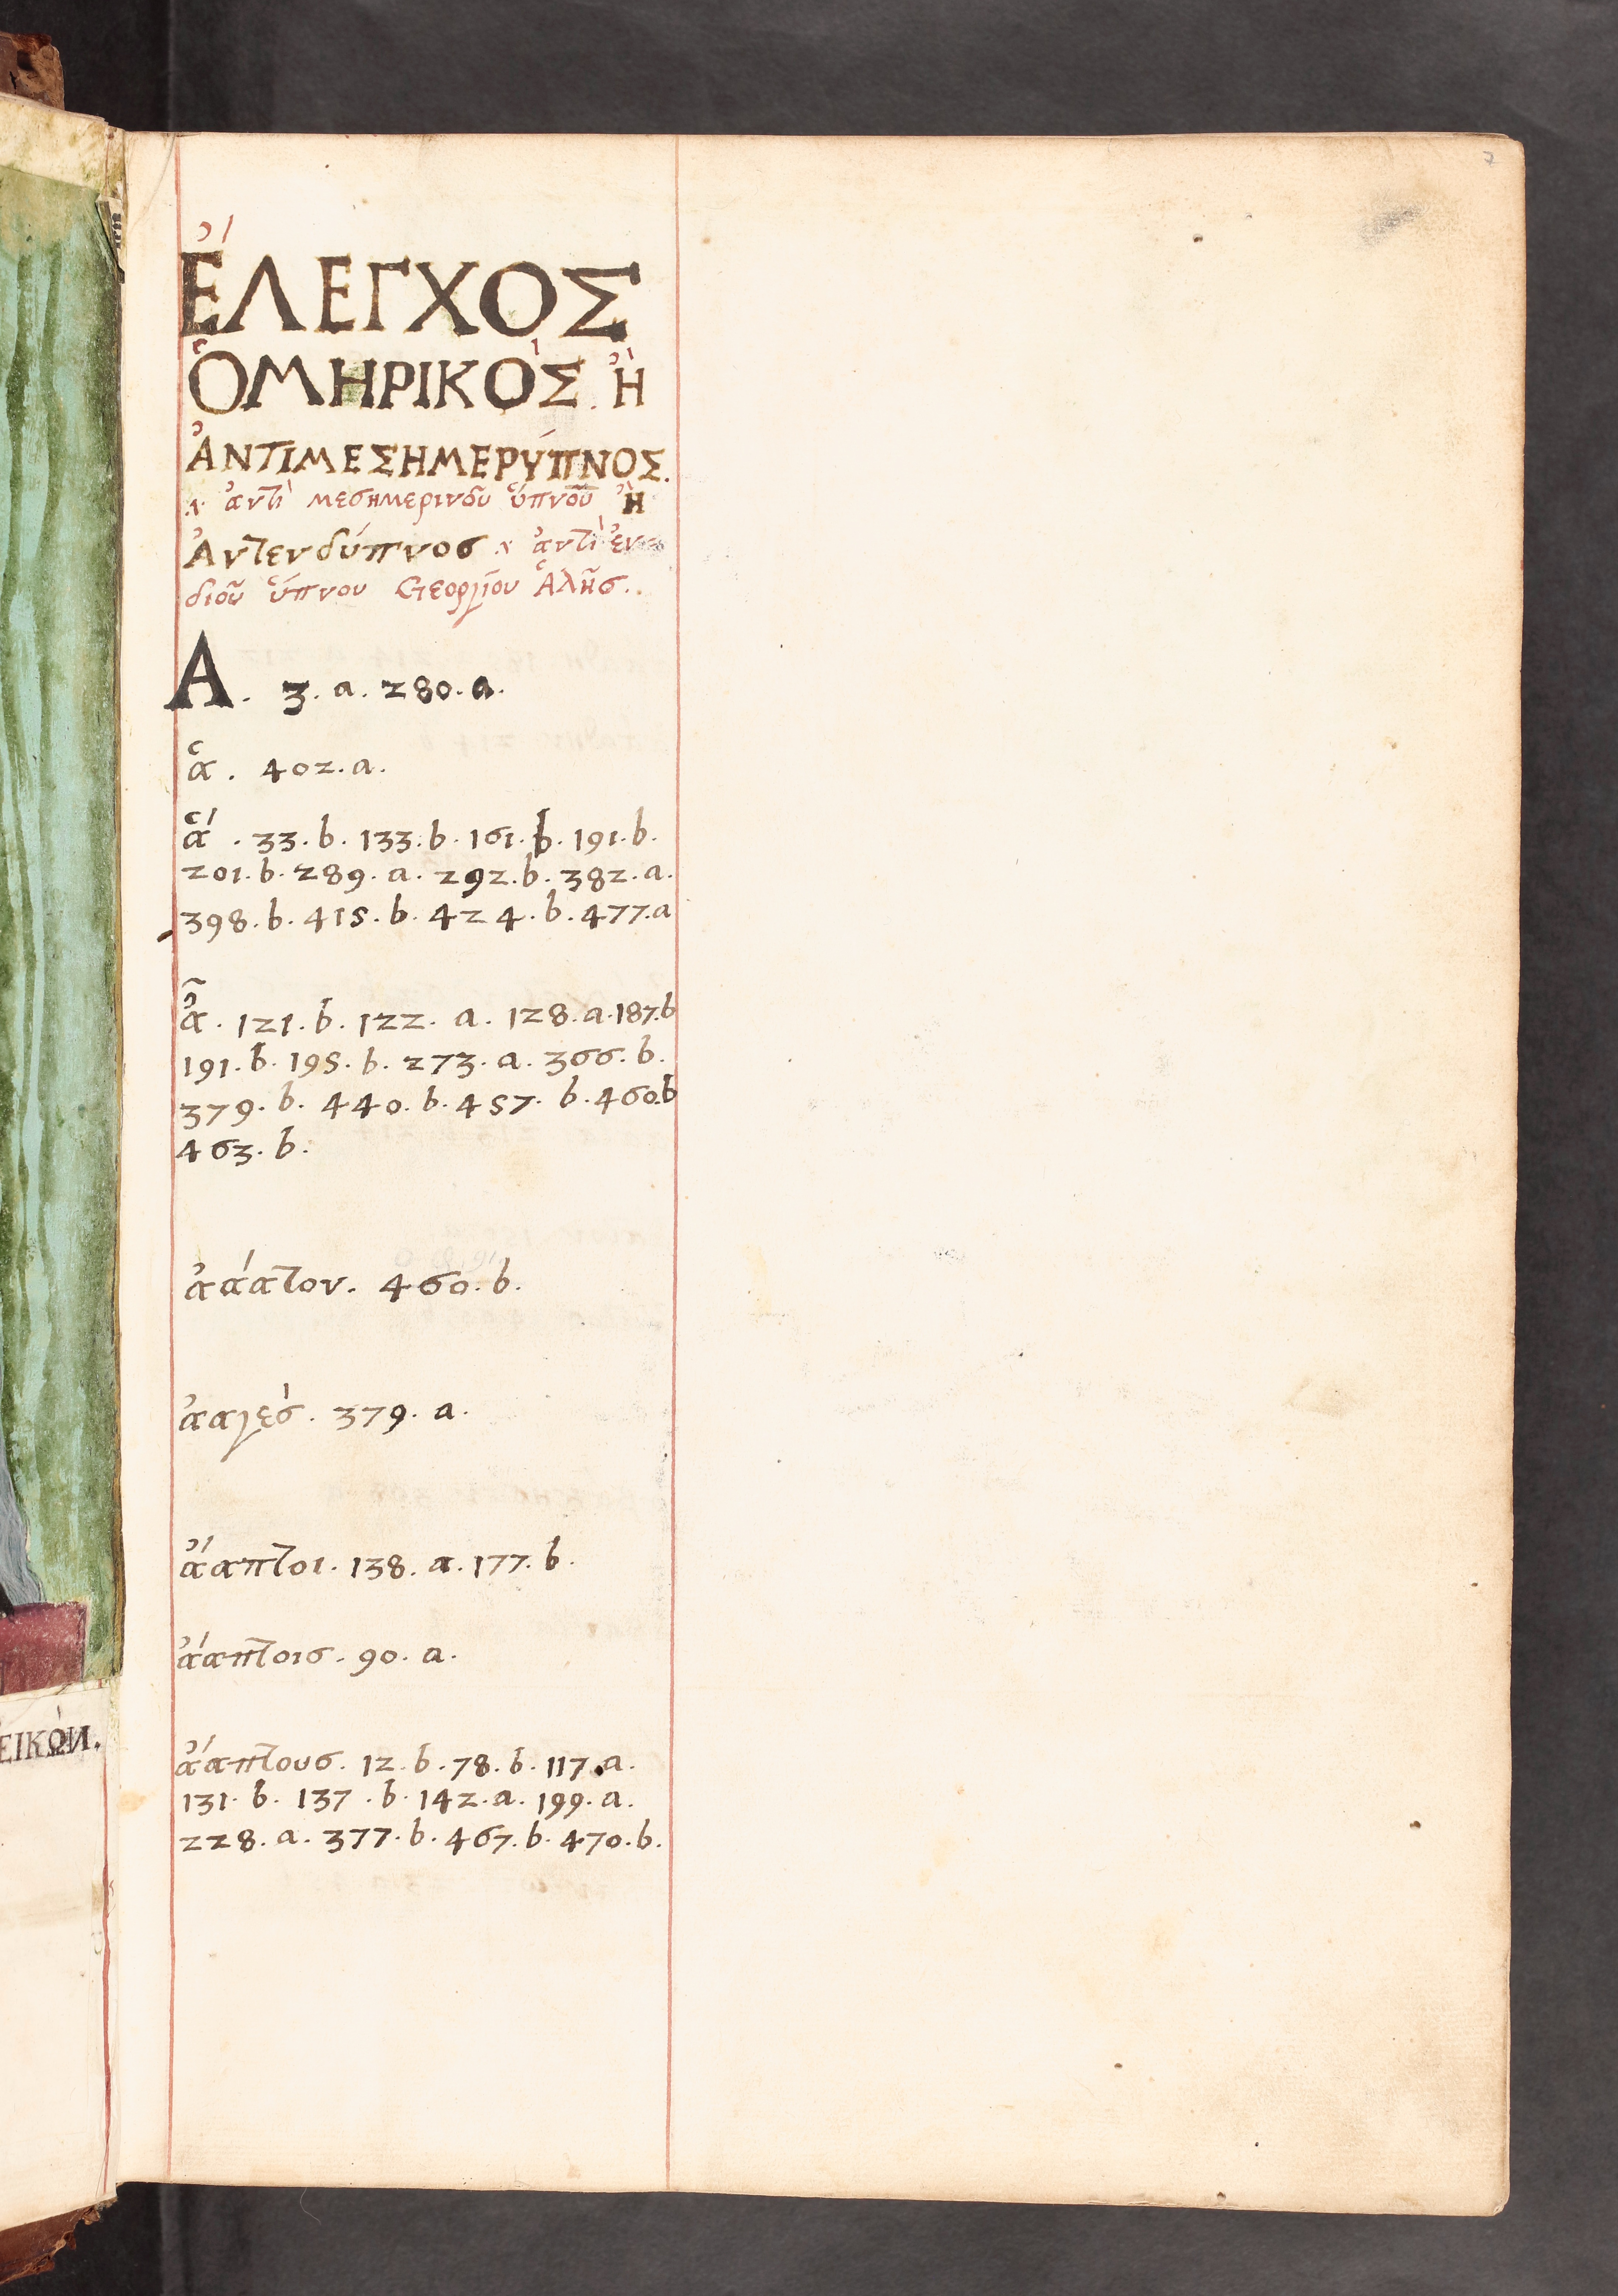 7
ἜΛΕΓΧΟΣ
ὉΜΗΡΙΚῸΣ. Ἢ
ἈΝΤΙΜΕΣΗΜΕΡΎΠΝΟΣ.
ἀντὶ μεσημερινοῦ ὕπνου ἢ
Ἀντενδύπνοσ ἀντὶ
διοῦ ὕπνου Γεοργίου Ἁλῆσ.
Α. 3. a. 280. a.
ἁ. 402. a.
ἅ. 33. b. 133. b. 161. b. 191. b.
201. b. 289. a. 292. b. 382. a.
398. b. 415. b. 424. b. 477. a
ἆ. 121. b. 122. a. 128. a. 187. b
191. b. 195. b. 273. a. 366. b.
379. b. 440. b. 457. b. 460. b
463. b.
ἀάατον. 460. b.
ἀαγὲσ. 379. a.
ἄαπτοι. 138. a. 177. b.
ἄαπτοισ. 90. a.
ἄαπτουσ. 12. b. 78. b. 117. a.
131. b. 137. b. 142. a. 199. a.
228. a. 377. b. 467. b. 470. b.
ΕΙΚῺΝ.